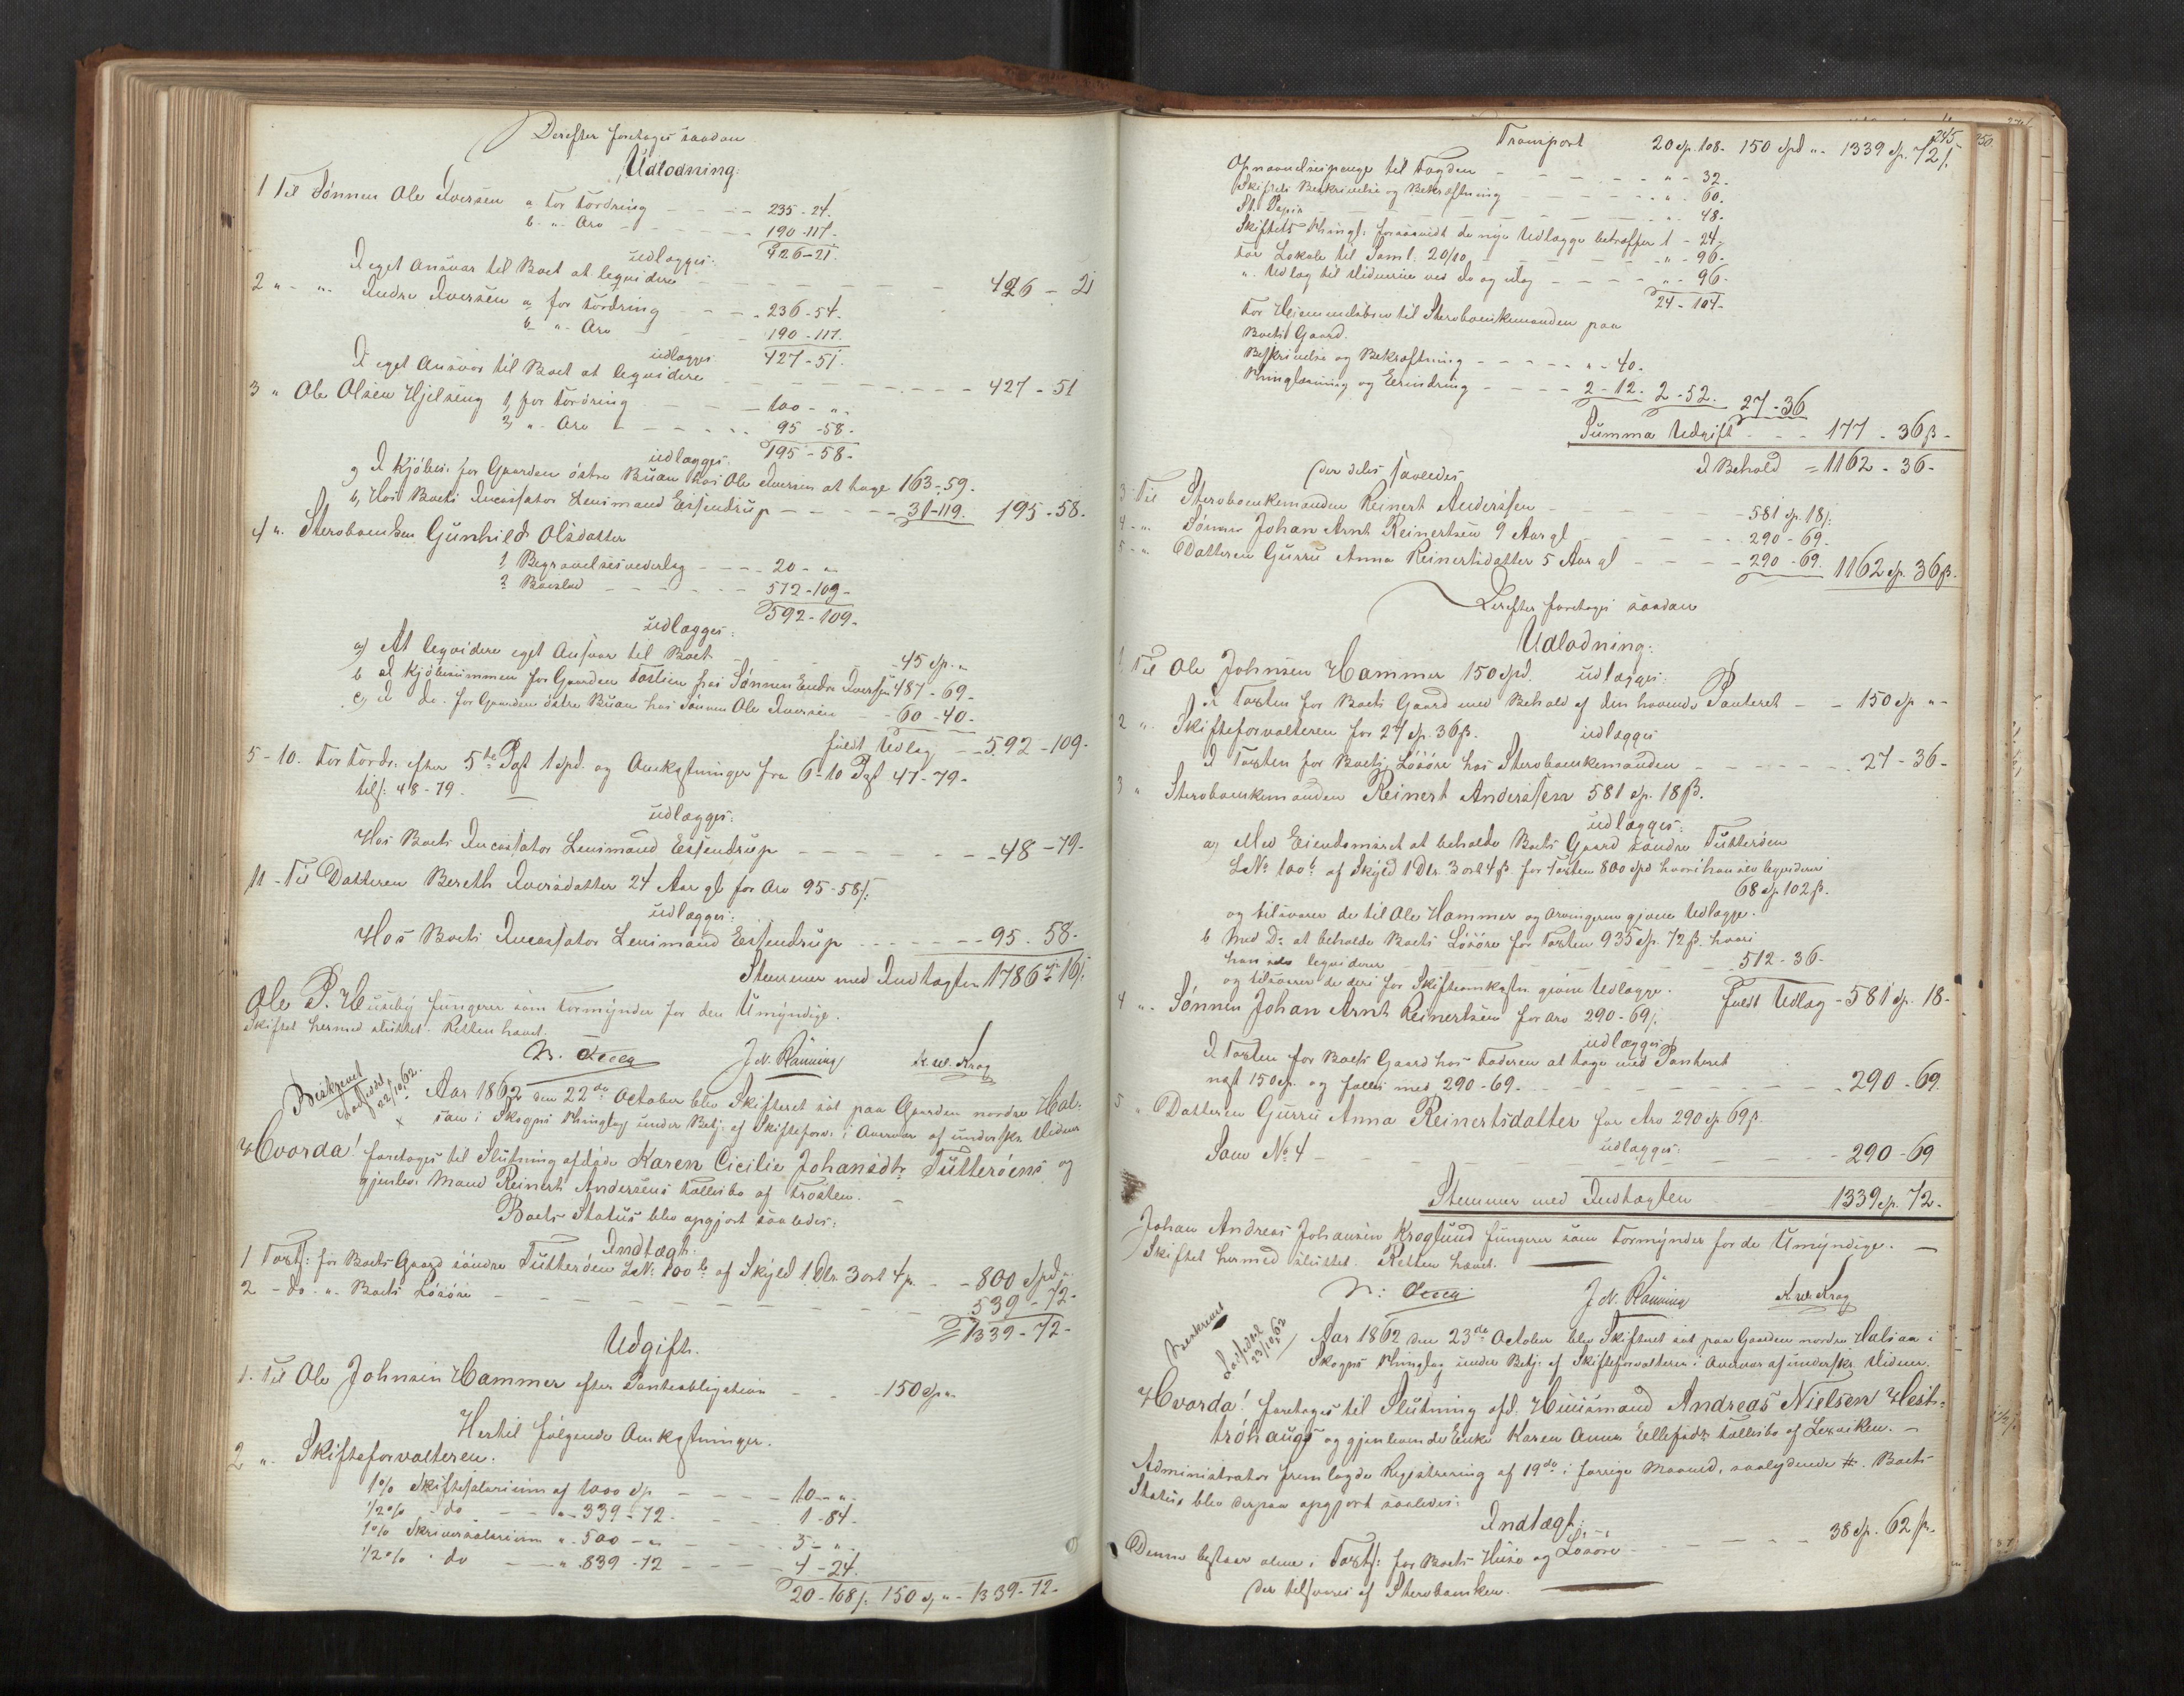 Derefter foretoges saadan
Udlodning:
1 Til Sønnen Ole Iversen a. for Fordring - - - - 235 - 24.
b. " Arv - - - - 190 - 117.
426 - 21.
udlægges:
I eget Ansvar til Boet at leqvidere - - - - 426 - 21
2 " - " Endre Iversen a, for Fordring - - - 236 - 54.
b " Arv - 190 - 117.
udlægges 427 - 51.
I eget Ansvar til Boet at leqvidere - - - - 427 - 51
3 " Ole Olsen Hjelseng 1, for Fordring - - 100 - " -
2, " Arv - - - - 95 - 58 -
udlægges. 195 - 58 -
a I Kjøbes. for Gaarden østre Buan hos Ole Iversen at tage 163 - 59 -
b, Hos Boets Incassator Lensmand Essendrup - - - - 31 - 119. 195 - 58 -
4 ". Stervboenken Gunhild Olsdatter
1, Begravelsesvederlag - - - 20 - "
2 Boeslod - - - - 572 - 109 -
592 - 109 -
udlægges:
a) At leqvidere eget Ansvar til Boet - - - - 45 Sp. "
b I Kjøbesummen for Gaarden Tostien hos Sønnen Endre Iversen 487 - 69 -
c, I do. for Gaarden østre Buan hos Sønnen Ole Iversen - - 60 - 40 -
fuldt Udlæg - - 592 - 109 -
5 - 10. For Fordr. efter 5te Pgt 1 Spd. og Omkostninger fra 6 - 10 Pgt 47 - 79 -
tils: 48 - 79.
udlægges:
Hos Boets Incassator Lensmand Essendrup - - - - 48 - 79 -
11 - Til Datteren Bereth Iversdatter 24 Aar gl for Arv 95 - 58 ß:
udlægges:
Hos Boets Incassator Lensmand Essendrup - - - - 95. 58 -
Stemmer med Indtægten 1786 Sp 16 ß:
Ole P. Huseby fungerer som Formynder for den Umyndige.
Skiftet hermed sluttet. Retten hævet.
J. N. Rønning K. W. Krog
Beskrevet
22/10 62.
Aar 1862 den 22de October blev Skifteret sat paa Gaarden nordre Hal-
saa i Skogns Thinglag under Betj: af Skifteforv. i Overvær af underskr. Vidner
Hvorda! foretoges til Slutning afdøde Karen Cicilie Johansdtr Tutterøens og
gjenlev. Mand Reinert Andersens Fællesbo af Frosten. -
Boets Status blev opgjort saaledes:
Indtægt.
1 Taxt: for Boets Gaard søndre Tutterøen LNo 100 b af Skyld 1 Dlr. 3 ort 4 ß - - 800 Spd "
2 - do - " Boets Løsøre - - - - 539 - 72 -
1339 - 72 -
Udgift.
1. Til Ole Johnsen Hammer efter Panteobligation - - - 150 Sp "
Hertil følgende Omkostninger.
2 ". Skifteforvalteren.
1% Skiftesalarium af 1000 Sp - - - - 10 - " -
1/2% - do - - " - 339 - 72 - - - 1 - 84 -
1% Skriversalarium " 500 - " - - - 5 - " -
1/2% " do - - " 839 - 72 - - - 4 - 24.
20 - 108 ß. 150 Sp " - 1339 - 72 -
245
250.
Transport 20 Sp. 108 - 150 Spd " - 1339 Sp. 72 ß.
Opnævnelsespenge til Fogden - - - - " - 32 -
Skiftets Beskrivelse og Bekræftning - - - - " - 60.
St. Papir - - - - " - 48 -
Skiftets Thingl: forsaavidt de nye Udlægge betræffer 1 - 24 -
For Lokale til Saml. 20/10 - - - - " - 96 -
". Udlæg til Vidnerne ved do og idag - - - - " - 96 -
24 - 104 -
For Hjemmelsbrev til Stervboenkemanden paa
Boets Gaard.
Beskrivelse og Bekræftning - - - - " - 40 -
Thinglæsning og Erindring - - - - 2 - 12 - 2 - 52. 27 - 36
Summa Udgift - - - 177 - 36 ß -
I Behold = 1162 - 36 -
der deles saaledes
3 Til Stervboenkemanden Reinert Anderssen - - - - 581 Sp. 18 ß.
4 - " Sønnen Johan Arnt Reinertsen 9 Aar gl - - - 290 - 69 -
5 - " Datteren Gurru Anna Reinertsdatter 5 Aar gl - - - 290 - 69. 1162 Sp. 36 ß.
Derefter foretoges saadan
Udlodning:
1 Til Ole Johnsen Hammer 150 Spd. udlægges:
I Taxten for Boets Gaard med Behold af den havende Panteret - - 150 Sp " -
2 ". Skifteforvalteren for 27 Sp. 36 ß. udlægges
I Taxten for Boets Løsøre hos Stervboenkemanden - - - - 27 - 36 -
3 " Stervboenkemanden Reinert Anderssen 581 Sp. 18 ß.
udlægges:
a, Med Eiendomsret at beholde Boets Gaard søndre Tutterøen
LNo 100 b af Skyld 1 Dlr. 3 ort 4 ß. for Taxten 800 Spd hvori han selv leqviderer
68 Sp. 102 ß.
og tilsvarer de til Ole Hammer og Arvingerne givne Udlægge.
b Med Do at beholde Boets Løsøre for Taxten 539 Sp. 72 ß. hvori
han selv leqviderer - - - - 512 - 36 -
og tilsvarer de deri for Skifteomkostn. givne Udlægge. fuldt Udlæg - 581 Sp. 18 -
4 ". Sønnen Johan Arnt Reinertsen for Arv 290 - 69 ß.
udlægges
I Taxten for Boets Gaard hos Faderen at tage med Panteret
næst 150 Sp. og fælles med 290 - 69 - - - - 290 - 69.
5 " Datteren Gurru Anna Reinertsdatter for Arv 290 Sp 69 ß.
udlægges:
Som No 4 - - - - 290 - 69
Stemmer med Indtægten 1339 Sp. 72 -
Johan Andreas Johansen Kroglund fungerer som Formynder for de Umyndige. -
Skiftet hermed sluttet. Retten hævet.
J. N. Rønning K. W. Krog
Beskrevet
23/10 62
Aar 1862 den 23de October blev Skifteret sat paa Gaarden nordre Halsaa i
Skogns Thinglag under Betj: af Skifteforvalteren i Overvær af underskr. Vidner.
Hvorda! foretoges til Slutning afd. Huusmand Andreas Nielsen Hest-
trøhaugs og gjenlevende Enke Karen Anna Ellefsdtr Fællesbo af Lexviken. -
Administrator fremlagde Registrering af 19de i forrige Maaned, saalydende #. Boets
Status blev derpaa opgjort saaledes:
Indtægt:
Denne bestaar alene i Taxts: for Boets Huse og Løsøre - - - - 38 Sp. 62 ß.
der tilsvares af Stervboenken.